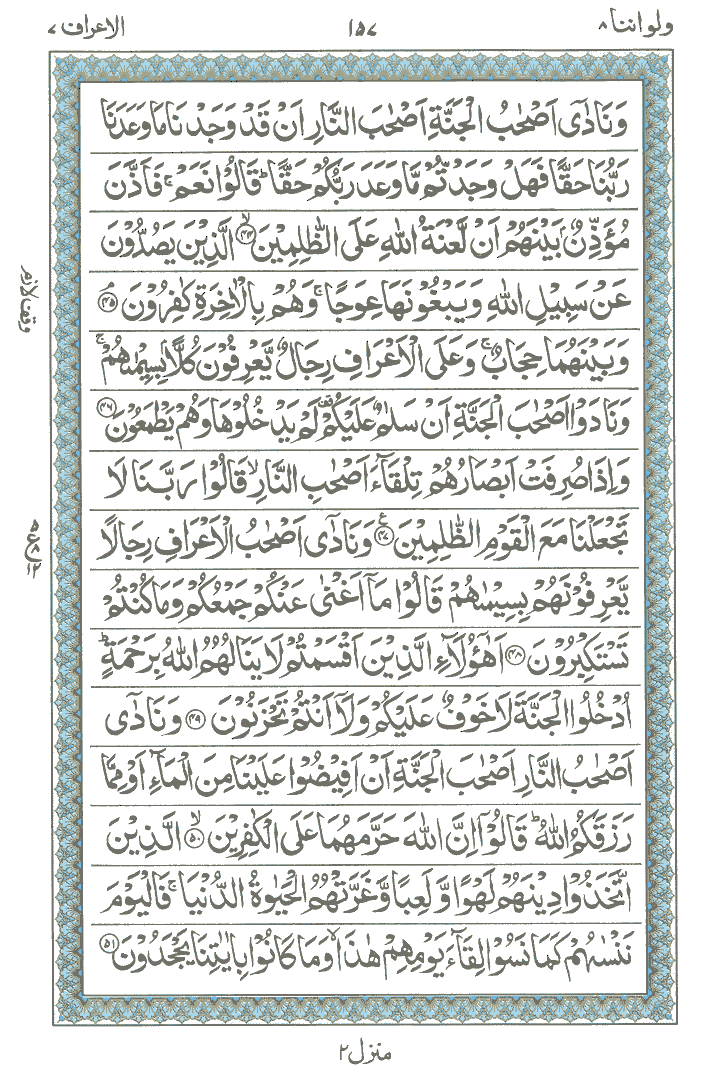 ولو اننا ۸ ۱۵۷ الاعراف ۷
وَنَادٰۤی اَصْحٰبُ الْجَنَّةِ اَصْحٰبَ النَّارِ اَنْ قَدْ وَجَدْنَا مَا وَعَدَنَا
رَبُّنَا حَقًّا فَهَلْ وَجَدْتُّمْ مَّا وَعَدَ رَبُّكُمْ حَقًّا ؕ قَالُوْا نَعَمْ ۚ فَاَذَّنَ
مُؤَذِّنٌۢ بَیْنَهُمْ اَنْ لَّعْنَةُ اللّٰهِ عَلَی الظّٰلِمِیْنَ ۙ﴿۴۴﴾ الَّذِیْنَ یَصُدُّوْنَ
عَنْ سَبِیْلِ اللّٰهِ وَیَبْغُوْنَهَا عِوَجًا ۚ وَهُمْ بِالْاٰخِرَةِ كٰفِرُوْنَ ﴿۴۵﴾ۘ
وقف لازم
وَبَیْنَهُمَا حِجَابٌ ۚ وَعَلَی الْاَعْرَافِ رِجَالٌ یَّعْرِفُوْنَ كُلًّۢا بِسِیْمٰىهُمْ ۚ
وَنَادَوْا اَصْحٰبَ الْجَنَّةِ اَنْ سَلٰمٌ عَلَیْكُمْ ۟ لَمْ یَدْخُلُوْهَا وَهُمْ یَطْمَعُوْنَ ﴿۴۶﴾
وَاِذَا صُرِفَتْ اَبْصَارُهُمْ تِلْقَآءَ اَصْحٰبِ النَّارِ ۙ قَالُوْا رَبَّنَا لَا
تَجْعَلْنَا مَعَ الْقَوْمِ الظّٰلِمِیْنَ ﴿۴۷﴾ع وَنَادٰۤی اَصْحٰبُ الْاَعْرَافِ رِجَالًا
۵ ع ۸ ۱۲
یَّعْرِفُوْنَهُمْ بِسِیْمٰىهُمْ قَالُوْا مَاۤ اَغْنٰی عَنْكُمْ جَمْعُكُمْ وَمَا كُنْتُمْ
تَسْتَكْبِرُوْنَ ﴿۴۸﴾ اَهٰۤؤُلَآءِ الَّذِیْنَ اَقْسَمْتُمْ لَا یَنَالُهُمُ اللّٰهُ بِرَحْمَةٍ ؕ
اُدْخُلُوا الْجَنَّةَ لَا خَوْفٌ عَلَیْكُمْ وَلَاۤ اَنْتُمْ تَحْزَنُوْنَ ﴿۴۹﴾ وَنَادٰۤی
اَصْحٰبُ النَّارِ اَصْحٰبَ الْجَنَّةِ اَنْ اَفِیْضُوْا عَلَیْنَا مِنَ الْمَآءِ اَوْ مِمَّا
رَزَقَكُمُ اللّٰهُ ؕ قَالُوْۤا اِنَّ اللّٰهَ حَرَّمَهُمَا عَلَی الْكٰفِرِیْنَ ۙ﴿۵۰﴾ الَّذِیْنَ
اتَّخَذُوْا دِیْنَهُمْ لَهْوًا وَّلَعِبًا وَّغَرَّتْهُمُ الْحَیٰوةُ الدُّنْیَا ۚ فَالْیَوْمَ
نَنْسٰىهُمْ كَمَا نَسُوْا لِقَآءَ یَوْمِهِمْ هٰذَا ۙ وَمَا كَانُوْا بِاٰیٰتِنَا یَجْحَدُوْنَ ﴿۵۱﴾
منزل ۲